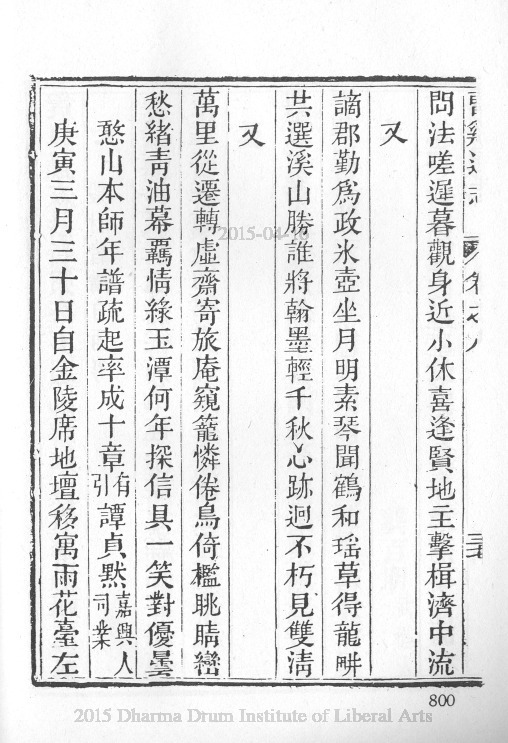 曹溪通志 卷之八 三七
問法嗟遲暮觀身近小休喜逢賢地主擊楫濟中流
又
謫郡勤爲政氷壺坐月明素琴聞鶴和瑶草得龍畊
共選溪山勝誰將翰墨輕千秋心跡逈不朽見雙淸
又
萬里從遷轉虛齋寄旅庵窺籠憐倦鳥倚檻眺晴巒
愁緒靑油幕覊情綠玉潭何年探信具一笑對優曇
憨山本師年譜疏起率成十章有引譚貞默嘉興人司業
庚寅三月三十日自金陵席地壇移寓雨花臺左
800
2015-04-10
2015 Dharma Drum Institute of Liberal Arts